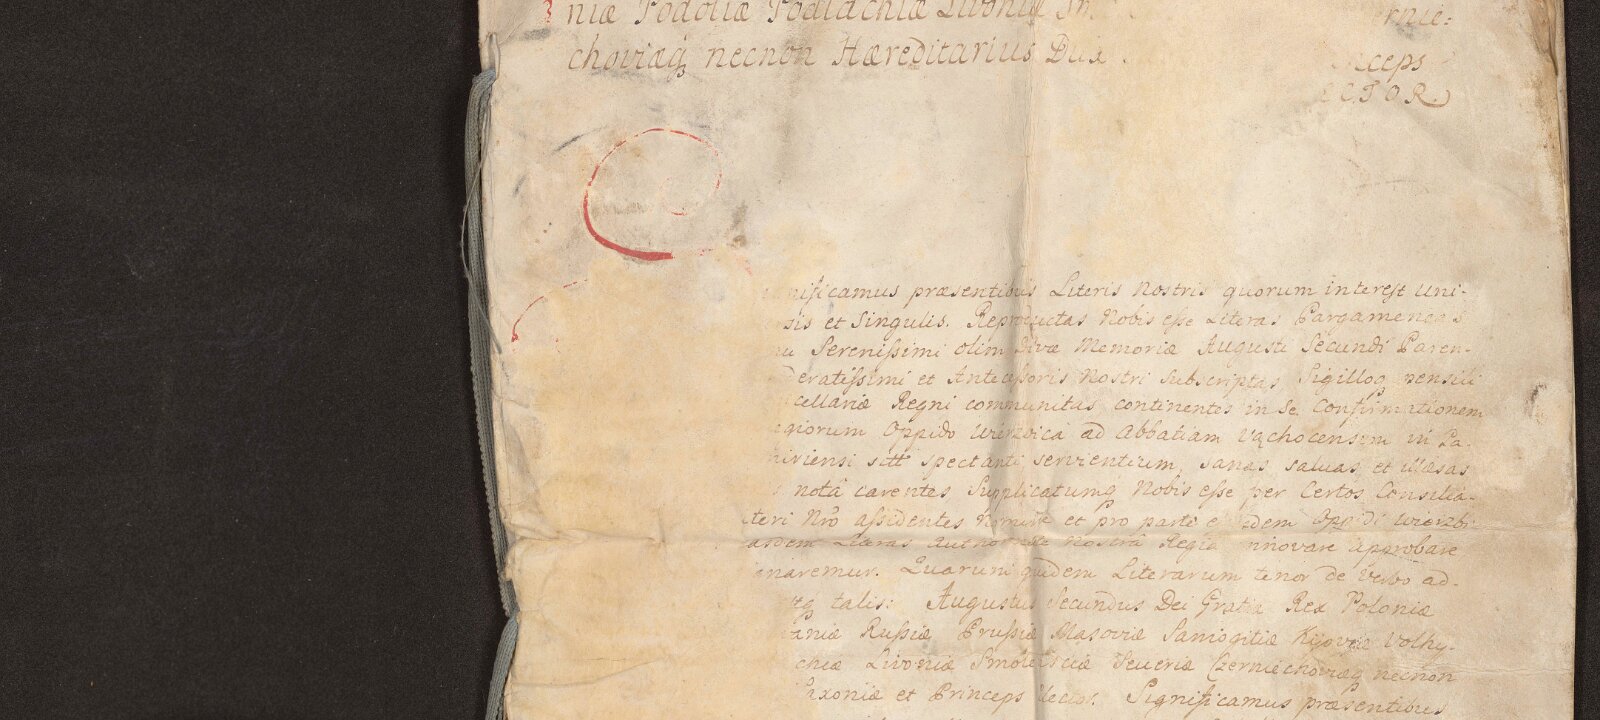 niæ Podoliæ Podlachiæ Livoniæ Sm rnie:
choviæq necnon Hæreditarius Dux nceps
ECTOR.
nificamus præsentibus Literis Nostris quorum interest Uni-
sis et Singulis. Reproductas Nobis esse Literas Pargameneas
nu Serenissimi olim Divæ Memoriæ Augusti Secundi Paren-
deratissimi et Antecessoris Nostri subscriptas Sigilloq pensili
cellariæ Regni communitas continentes in Se Confirmationem
egiorum Oppido Wierzbica ad Abbatiam Vachocensem in Pa-
miriensi sitt spectanti servientium, sanas salvas et illæsas
notâ carentes Supplicatumq Nobis esse per Certos Consilia-
teri Nro assidentes Nomine et pro parte dem Oppidi Wierzbi
asdem Literas Authoritate Nostrâ Regia nnovare approbare
naremur. Quarum quidem Literarum tenor de verbo ad-
rq talis: Augustus Secundus Dei Gratia Rex Poloniæ
aniæ Russiæ Prussiæ Masoviæ Samogitiæ Kijoviæ Volhy-
chiæ Livoniæ Smolensciæ Severiæ Czerniechoviæq necnon
axoniæ et Princeps Elector. Significamus præsentibus